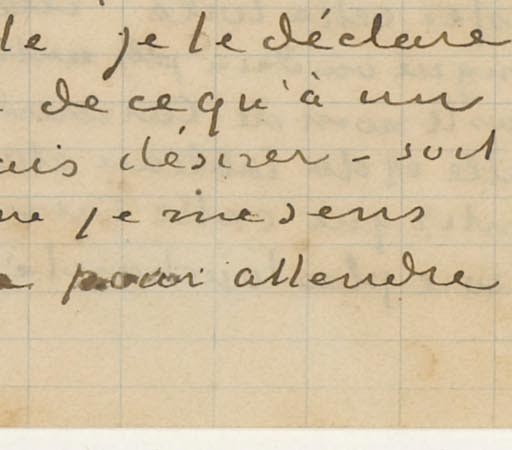 le je le déclare
de ce qu'à un
ais désirer - soit
je me sens
pour attendre